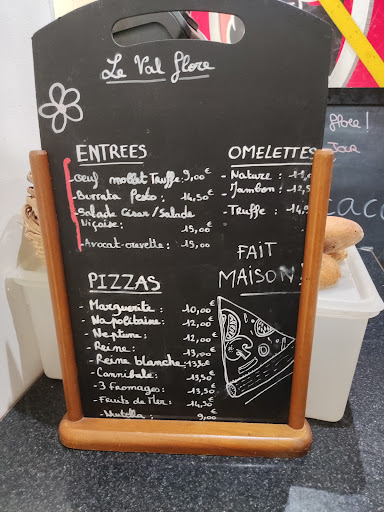 Le Val flore
ENTREES
- oeuf mollet Truffe 9,00€
- Burrata Pesto : 14,50€
- Salade César / Salade
Niçoise : 15,00€
- Avocat-crevette : 15,00
OMELETTES
- Nature : 11,
- Jambon : 12,5
- Truffe : 14,5
FAIT
MAISON !
PIZZAS
- Marguerite : 10,00€
- Napolitaine : 12,00€
- Neptune : 12,00€
- Reine : 13,00€
- Reine blanche : 13,50€
- Cannibale : 13,50€
- 3 Fromages : 13,50€
- Fruits de Mer : 14,50€
- Nutella : 9,00€
flore !
Jour